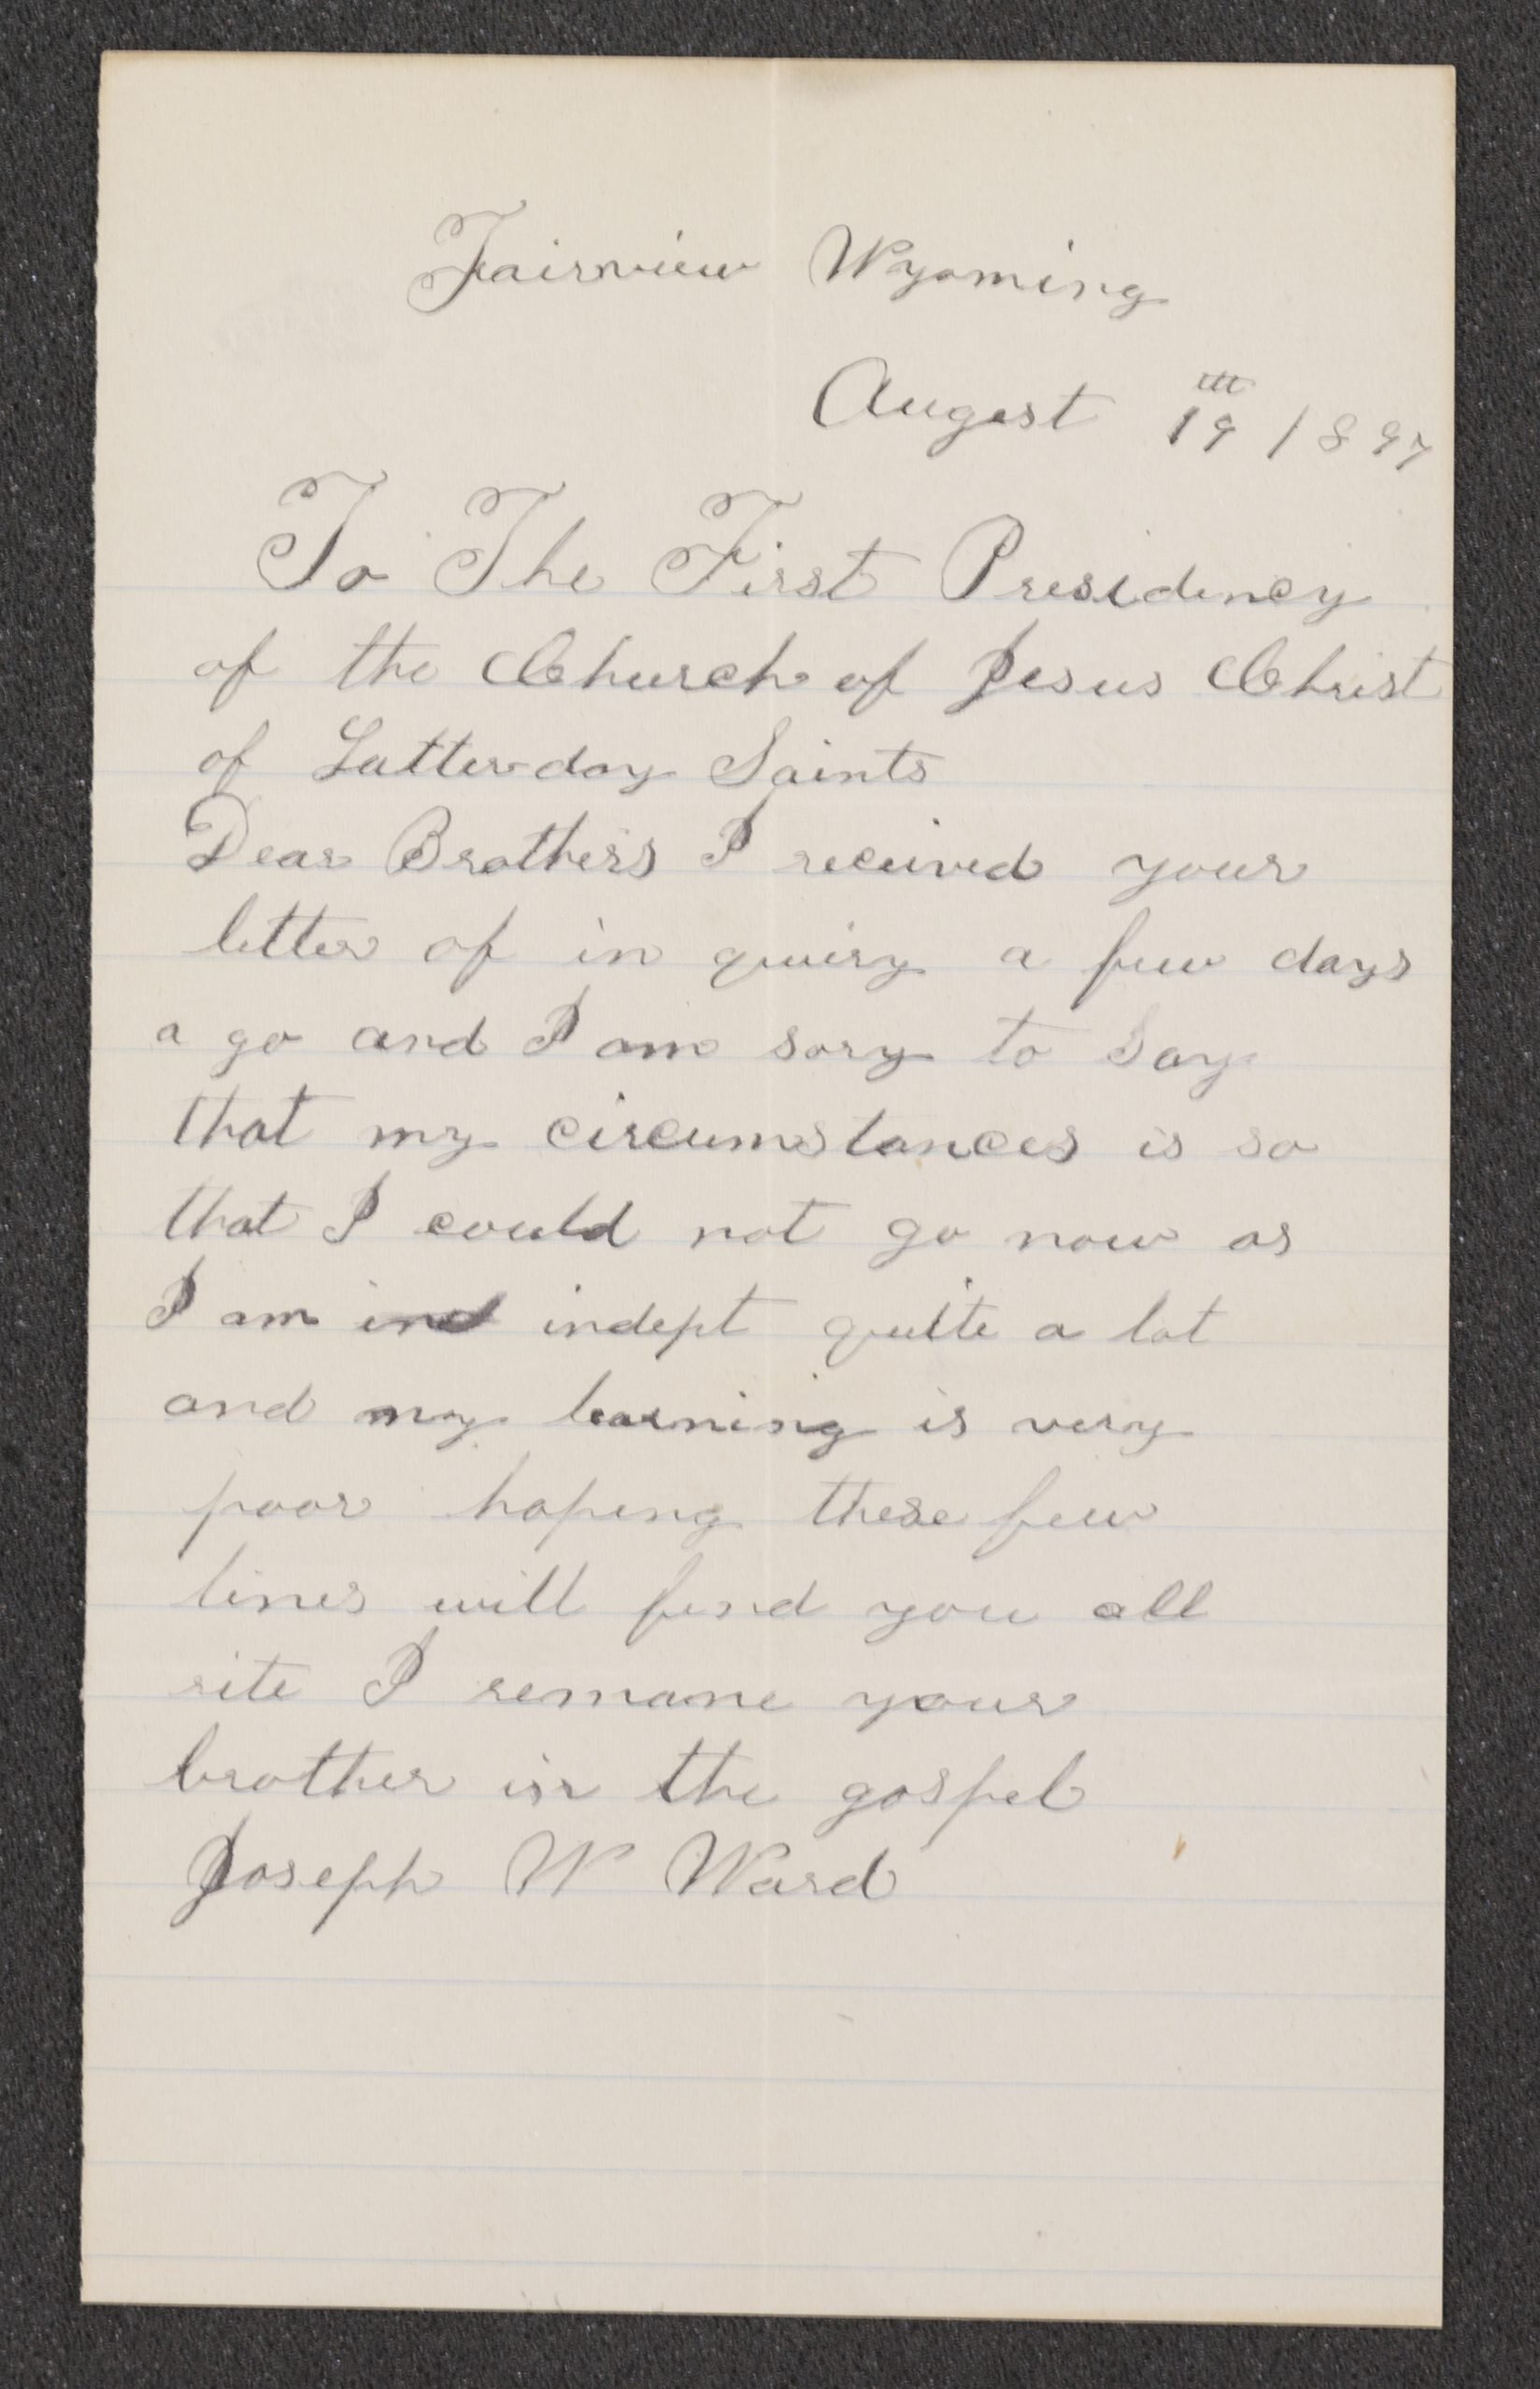 Fairview Wyoming
August 19th 1897
To The First Presidency
of the Church of Jesus Christ
of Latter-day Saints
Dear Brothers I received your
letter of in quiry a few days
a go and I am sory to Say
that my circumstances is so
that I could not go now as
I am ind indept quite a lot
and my learning is very
poor hoping these few
lines will find you all
rite I remane your
brother in the gospel
Joseph W Ward